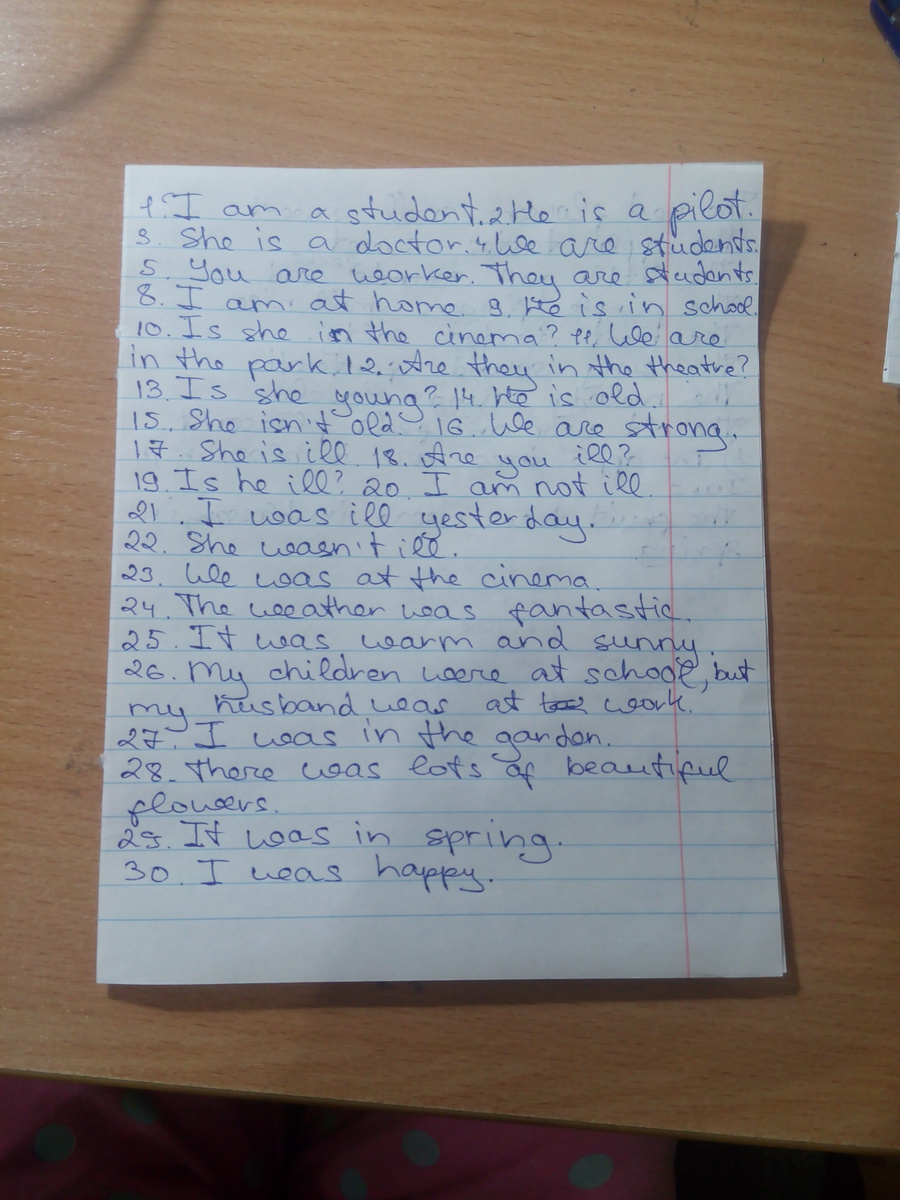 1. I am a student. 2. He is a pilot.
3. She is a doctor. 4. We are students.
5. You are worker. They are students.
8. I am at home 9. He is in school.
10. Is she in the cinema? 11. We are
in the park. 12. Are they in the theatre?
13. Is she young? 14. He is old
15. She isn't old. 16. We are strong.
17. She is ill. 18. Are you ill?
19. Is he ill? 20. I am not ill.
21. I was ill yesterday.
22. She wasn't ill.
23. We was at the cinema.
24. The weather was fantastic.
25. It was warm and sunny.
26. My children were at school, but
my husband was at work.
27. I was in the garden.
28. There was lots of beautiful
flowers.
29. It was in spring.
30. I was happy.